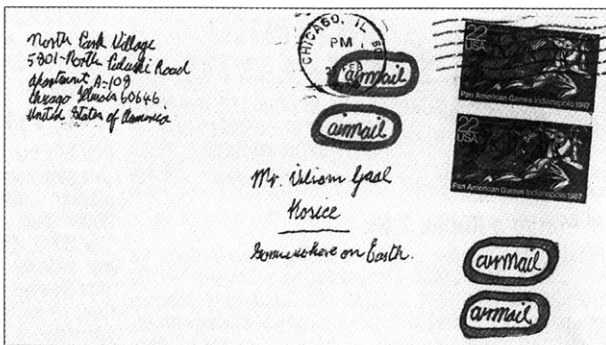 North Park Village
5801-North Pulaski Road
Apartment A-109
Chicago Illinois 60646
United States of America
CHICAGO, IL 60
PM
FEB
airmail
airmail
22
USA
Pan American Games Indianapolis 1987
22
USA
Pan American Games Indianapolis 1987
Mr. Viliam Gaal
Kosice
Somewhere on Earth.
airmail
airmail